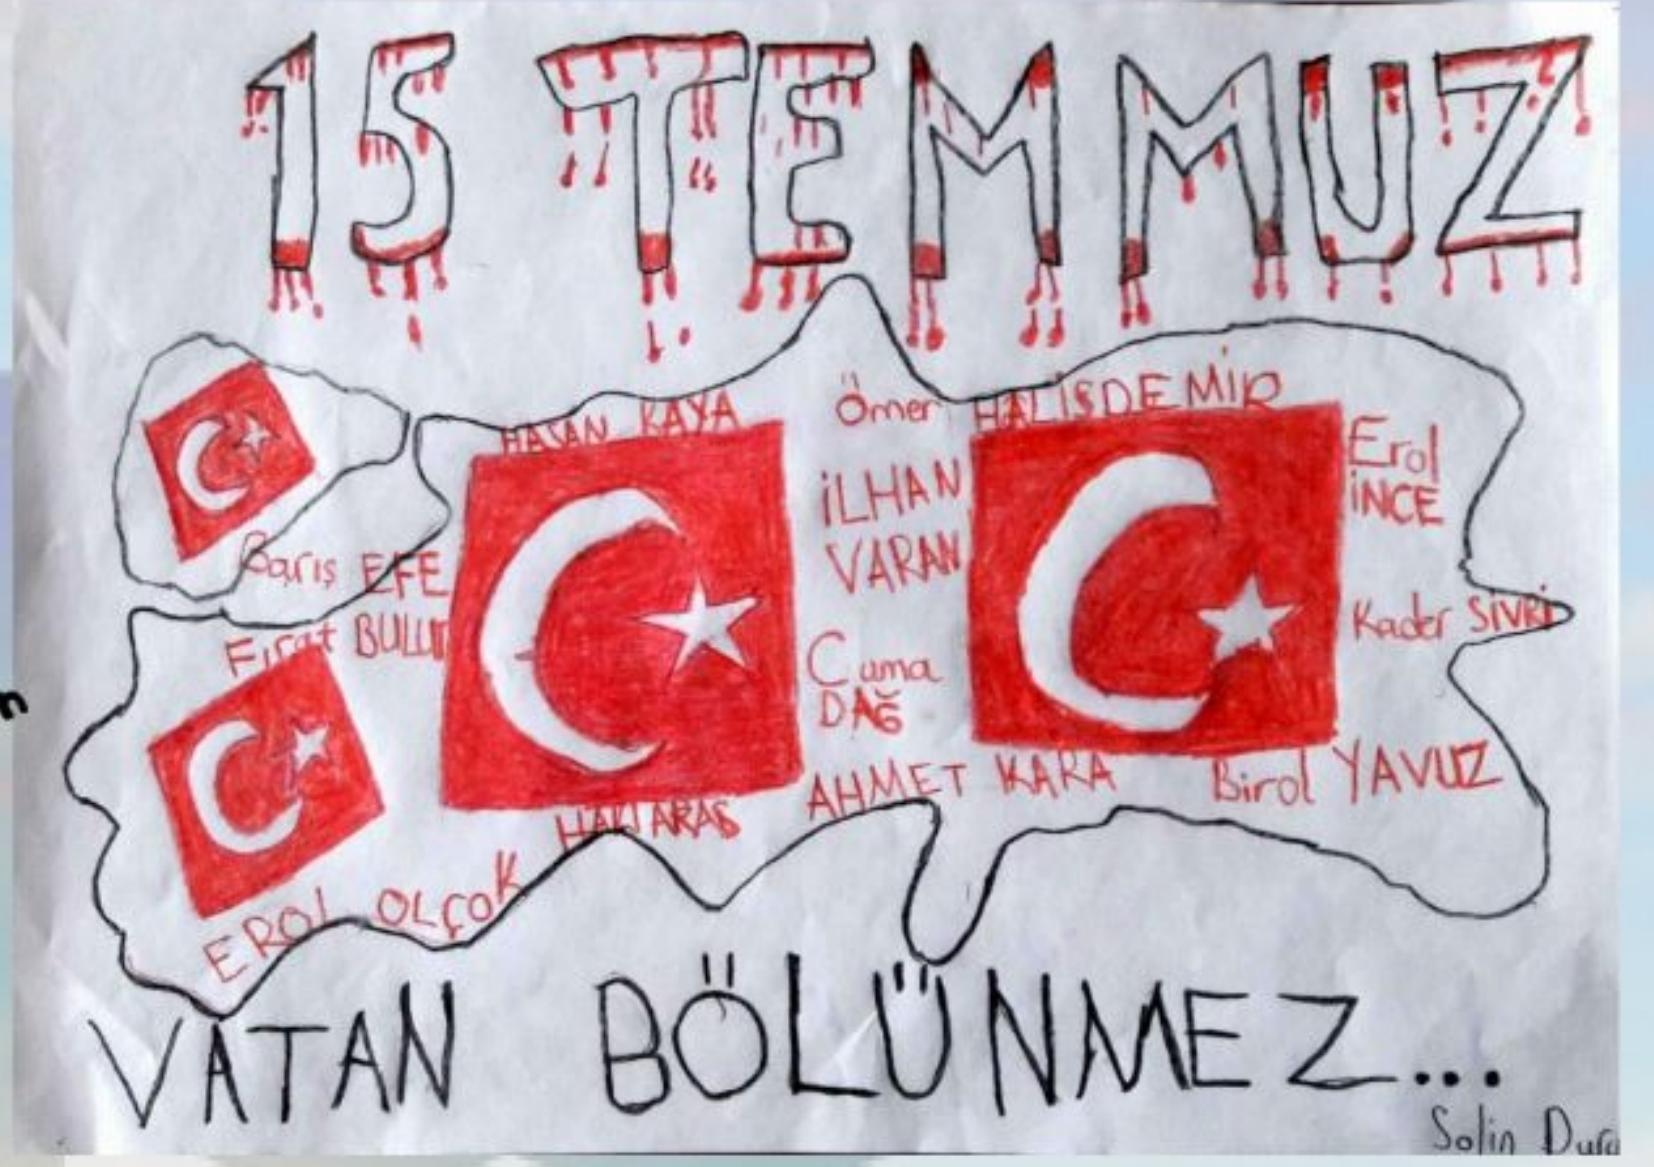 15 TEMMUZ
HASAN KAYA
Ömer HALİSDEMİR
Erol
İNCE
İLHAN
VARAN
Barış EFE
Fırat BULUT
Kader SİVRİ
Cuma
DAĞ
AHMET KARA
Birol YAVUZ
HAKI ARAS
EROL OLÇOK
VATAN BÖLÜNMEZ...
Solin